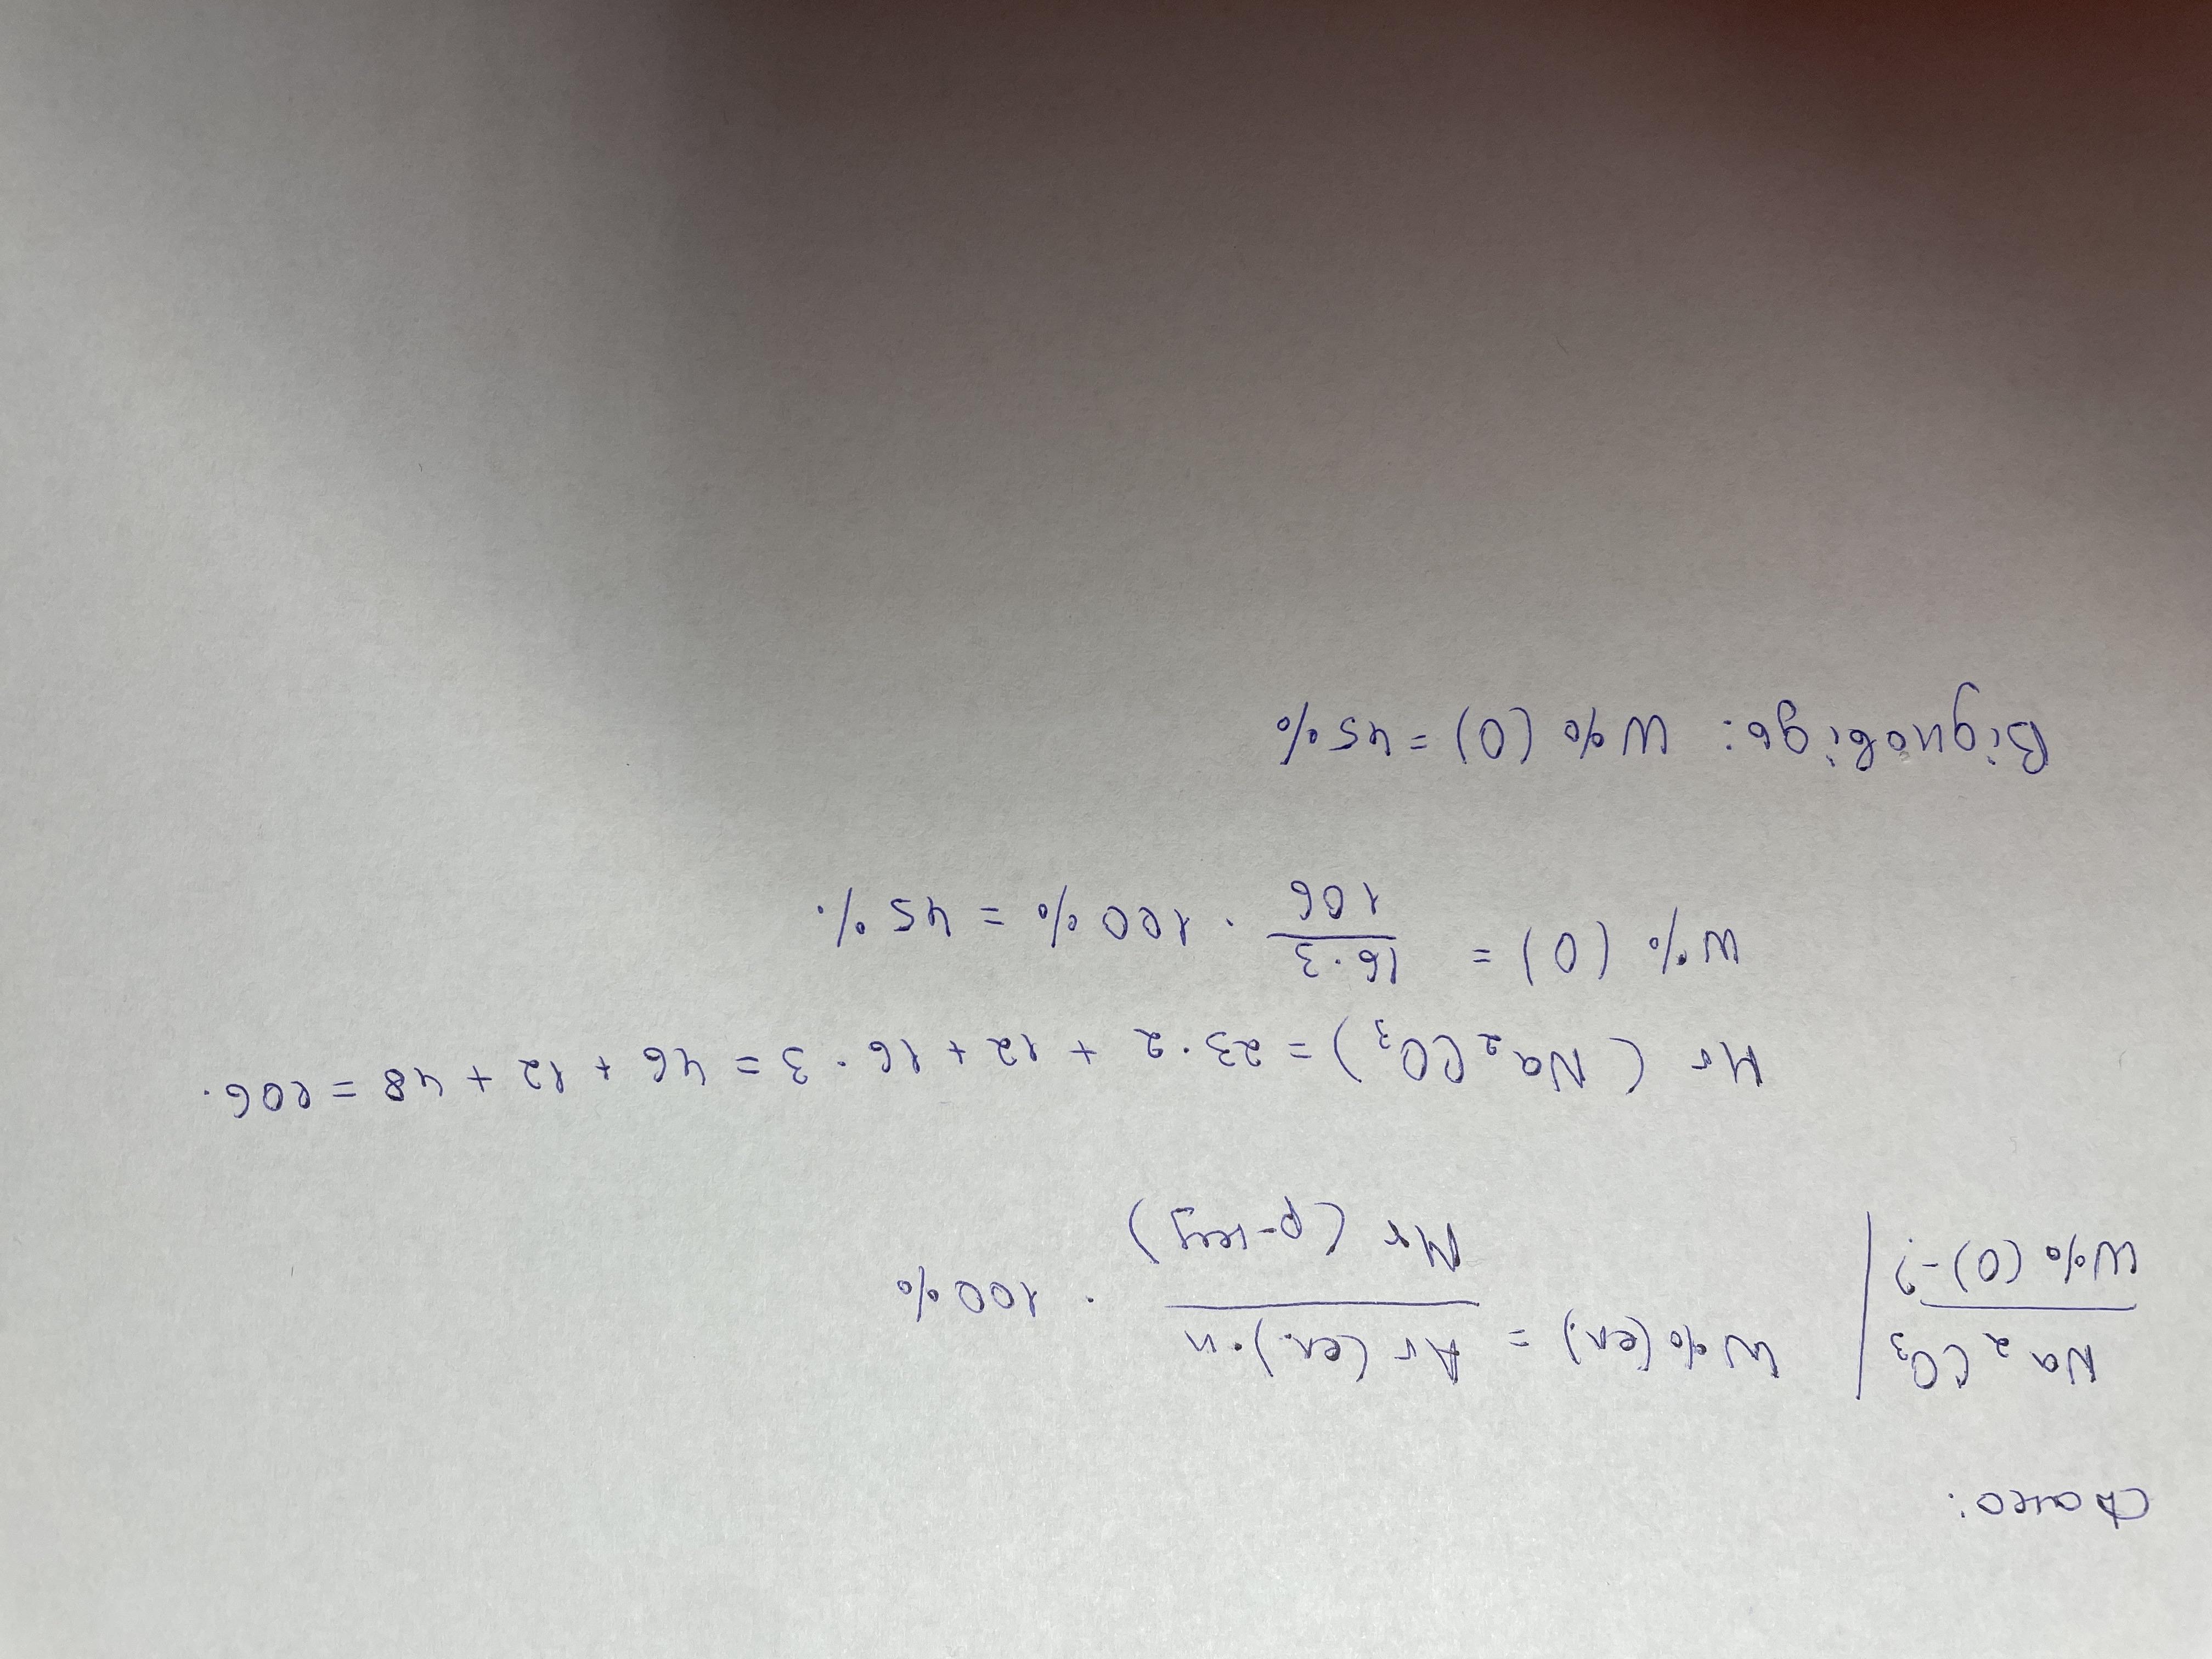 Дано:
Na₂CO₃
W% (O) - ?
W% (ел.) = Ar (ел.) · n / Mr (р-ну) · 100%
Mr (Na₂CO₃) = 23 · 2 + 12 + 16 · 3 = 46 + 12 + 48 = 106.
W% (O) = 16 · 3 / 106 · 100% = 45%.
Відповідь: W% (O) = 45%